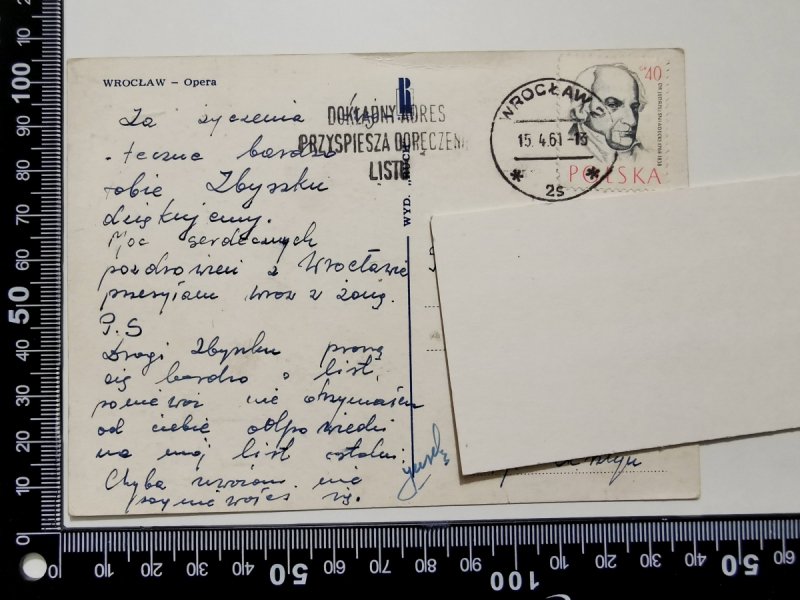 WROCŁAW – Opera
Za życzenia
bardzo
tobie Zbyszku
dziękujemy.
Moc serdecznych
pozdrowień z Wrocławia
przesyłam wraz z żoną.
P.S
Drogi Zbyszku proszę
cię bardzo o list,
ponieważ nie otrzymałem
od ciebie odpowiedzi
na mój list ostatni.
Chyba nie
się.
DOKŁADNY ADRES
PRZYSPIESZA DORĘCZENI
LISTU
WYD. „RUCH"
WROCŁAW 2
15.4.61-13
2s
40
POLSKA